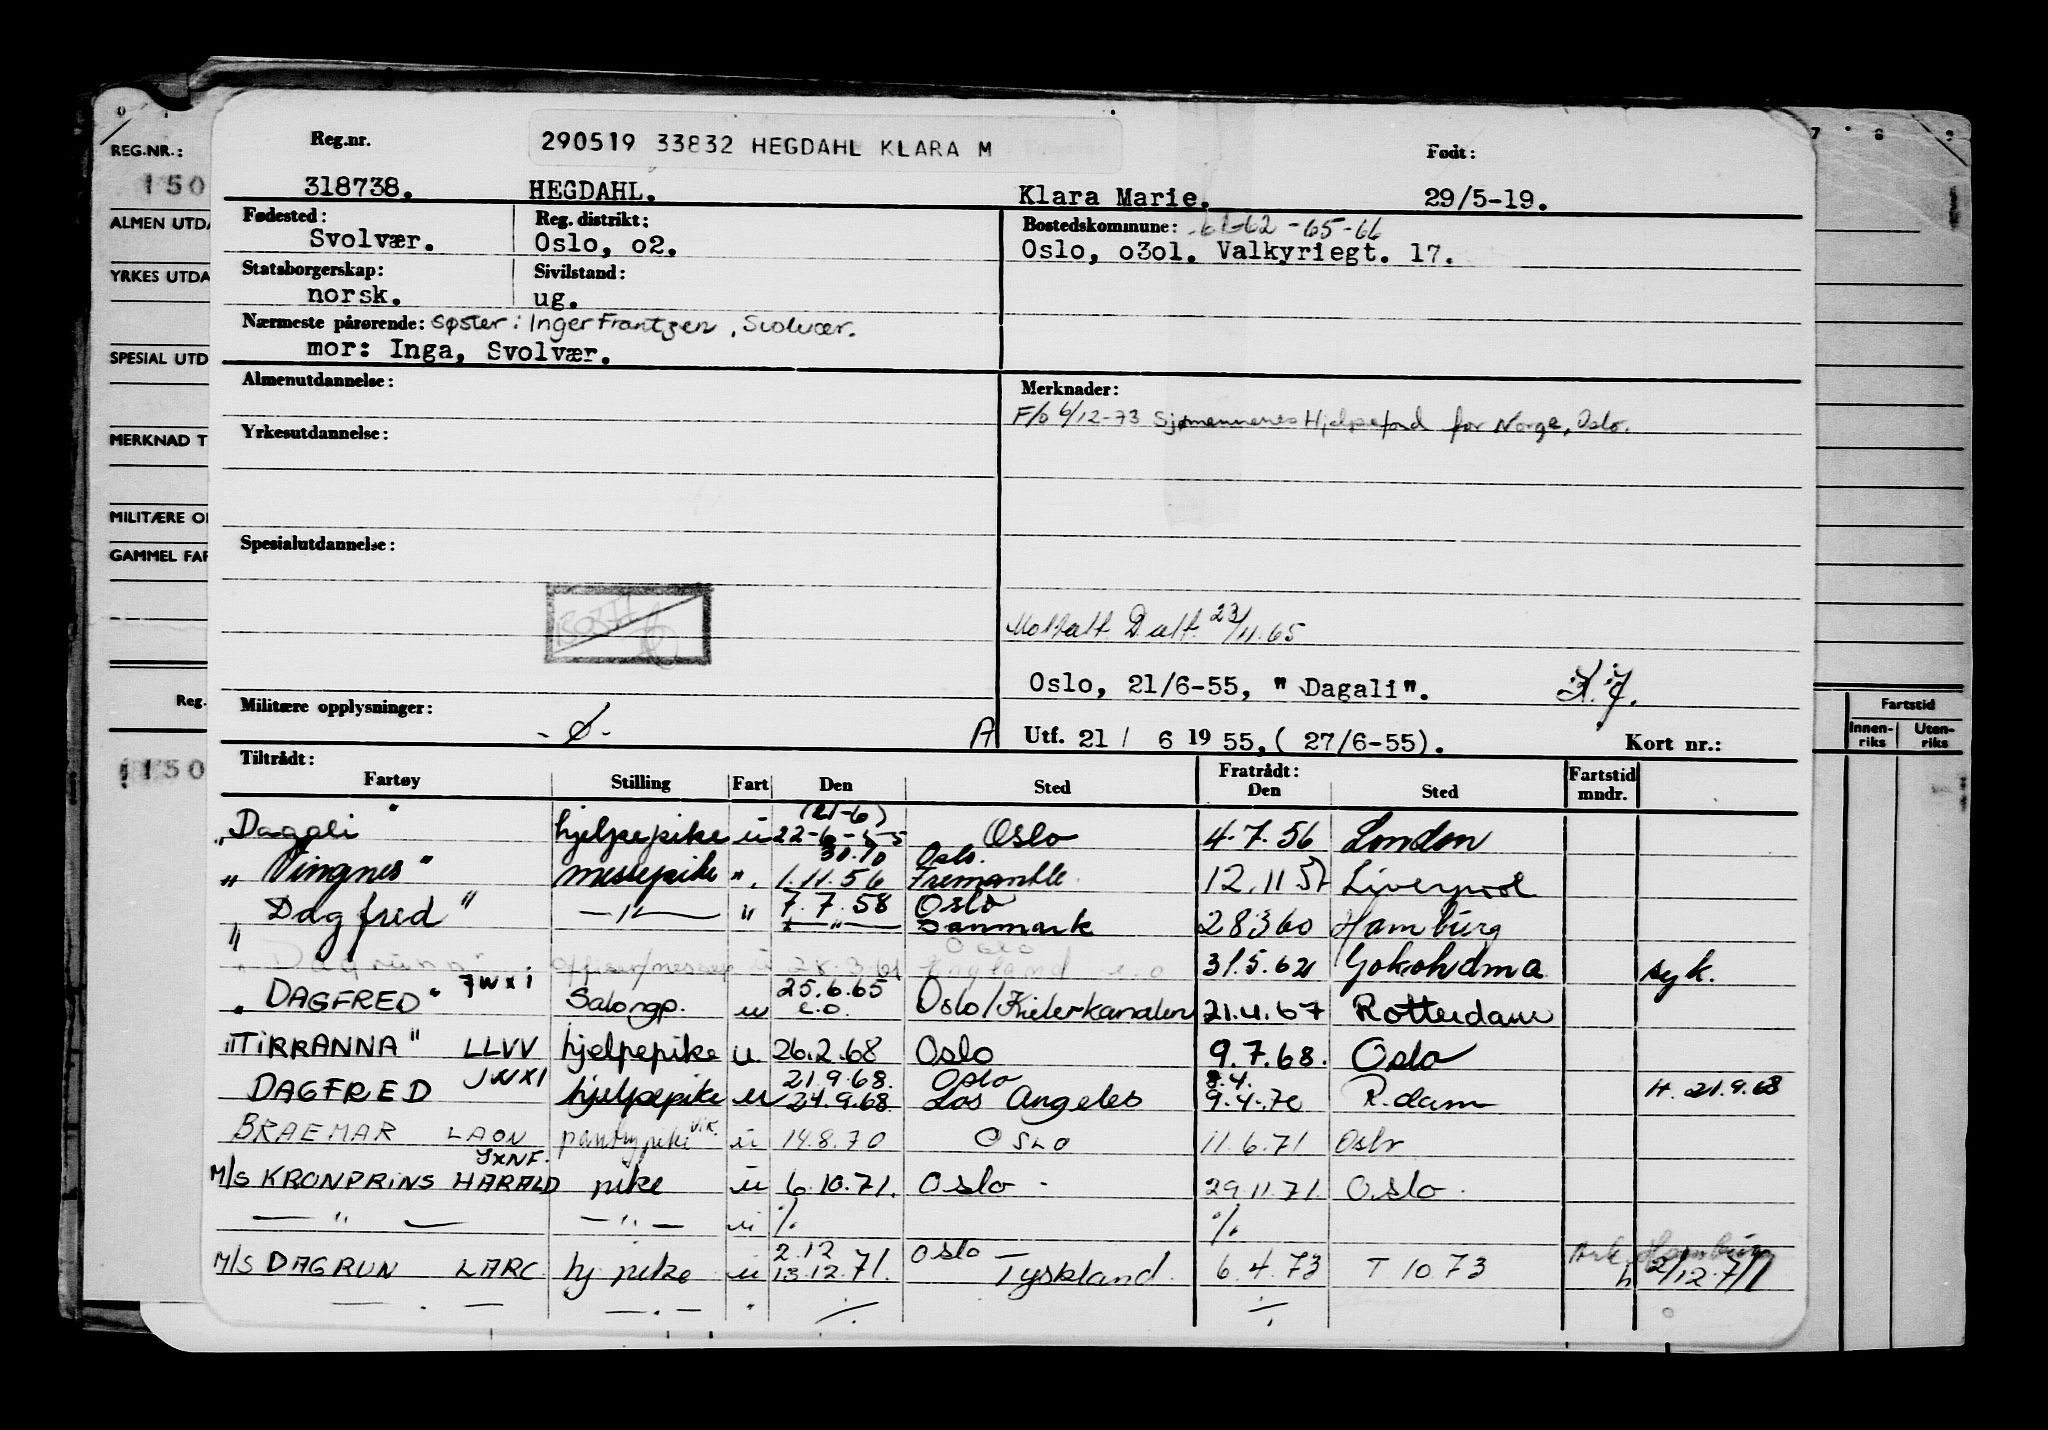 REG.NR.:
150
ALMEN UTDA
YRKES UTDA
SPESIAL UTD
MERKNAD T
MILITÆRE O
GAMMEL FAR
Reg.
150
7 8 9
Fartstid
Innen-riks Uten-riks
290519 33832 HEGDAHL KLARA M
Reg.nr. Født:
318738. HEGDAHL. Klara Marie. 29/5-19.
Fødested: Reg. distrikt: Bostedskommune: 61-62-65-66
Svolvær. Oslo, o2. Oslo, o3ol. Valkyriegt. 17.
Statsborgerskap: Sivilstand:
norsk. ug.
Nærmeste pårørende: søster: Inger Frantzen, Svolvær.
mor: Inga, Svolvær.
Almenutdannelse: Merknader:
F/b 6/12-73 Sjømennenes Hjelpefond for Norge, Oslo.
Yrkesutdannelse:
Spesialutdannelse:
Mottatt D alt. 23/11.65
Oslo, 21/6-55, " Dagali".
Militære opplysninger: -Ø- A Utf. 21/ 6 19 55, ( 27/6-55). Kort nr.:
Tiltrådt: Fratrådt: Fartstid mndr.
Fartøy Stilling Fart Den Sted Den Sted
(21-6)
"Dagali" hjelpepike u 22-6-55 Oslo 4.7.56 London
30.10 Oslo.
"Vingnes" messepike ". 1.11.56 Fremantle. 12.11 57 Liverpool
7.7.58 Oslo
"Dagfred" —"— " —"— Danmark 28360 Hamburg
Oslo
"Dagrunn" offiser/messep u 28.3.61 England e.o 31.5.62 Yokohama syk.
"DAGFRED" JWXI Salongp. u 25.6.65 e.o. Oslo/Kielerkanalen 21.4.67 Rotterdam
"TIRRANNA" LLVV hjelpepike u 26.2.68 Oslo 9.7.68. Oslo
21.9.68. Oslo 8.4.
DAGFRED JWXI hjelpepike u 24.9.68 Los Angeles 9.4.70 R.dam H. 21.9.68
BRAEMAR LAON pantrypike vik. u 14.8.70 OSLO 11.6.71 Oslo
JXNF.
M/S KRONPRINS HARALD pike u 6.10.71. Oslo - 29.11.71 Oslo.
— " — — " — u % %
2.12 Oslo
M/S DAGRUN LARC hj pike u 13.12.71. — Tyskland. 6.4.73 T 10 73 h 2/12.71
— . — — . — " ./. ./.